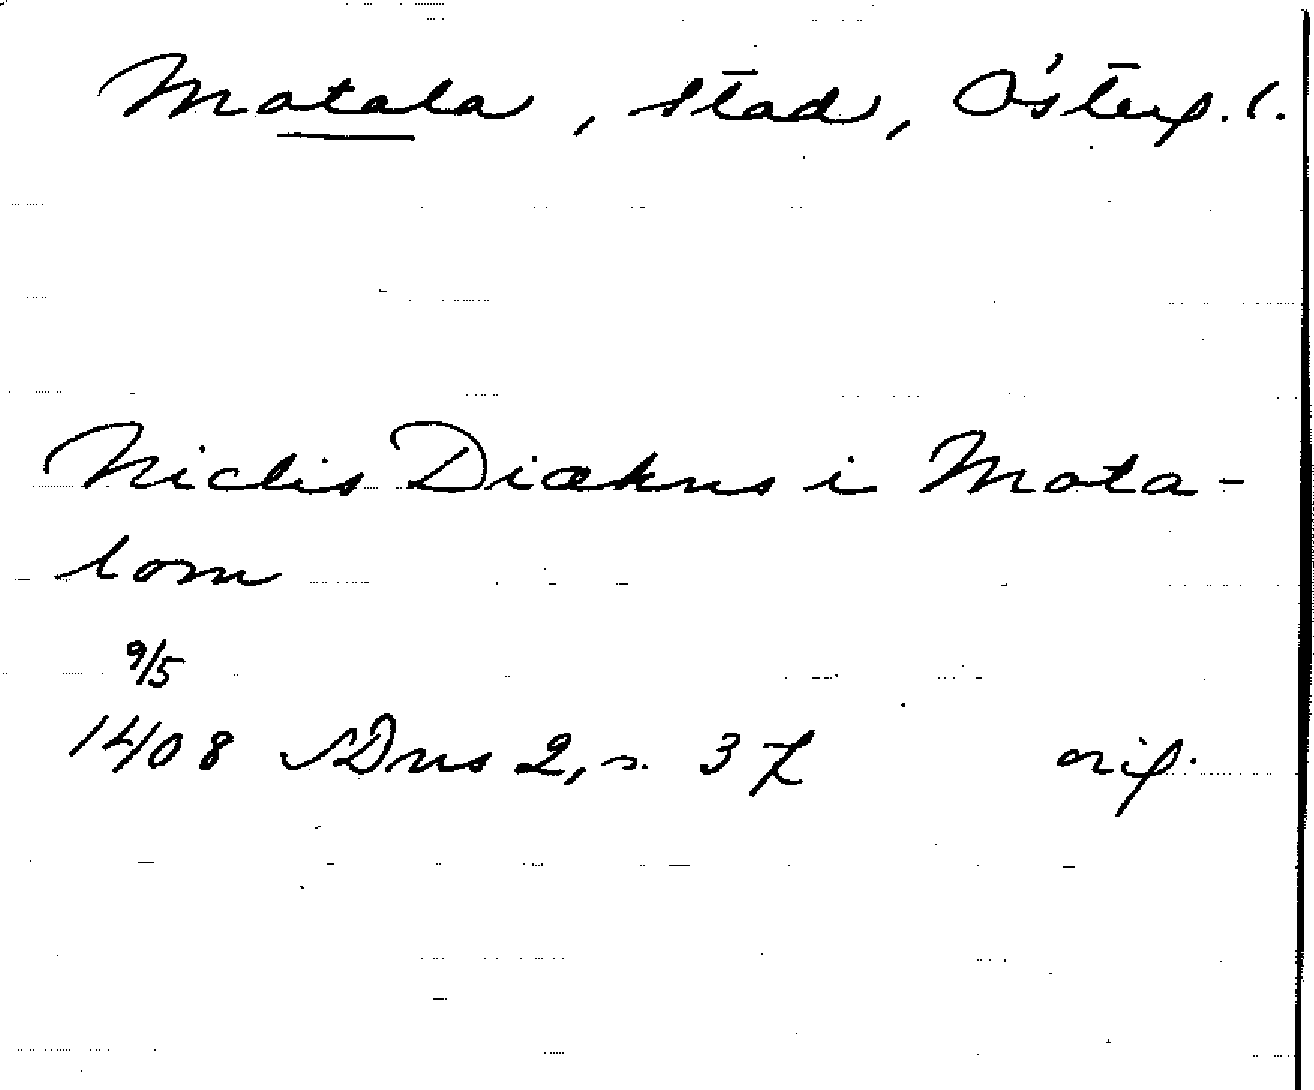 Motala, stad, Österg. l.
Niclis Diækns i Mota-
lom
9/5
1408 SDns 2, s. 37 orig.